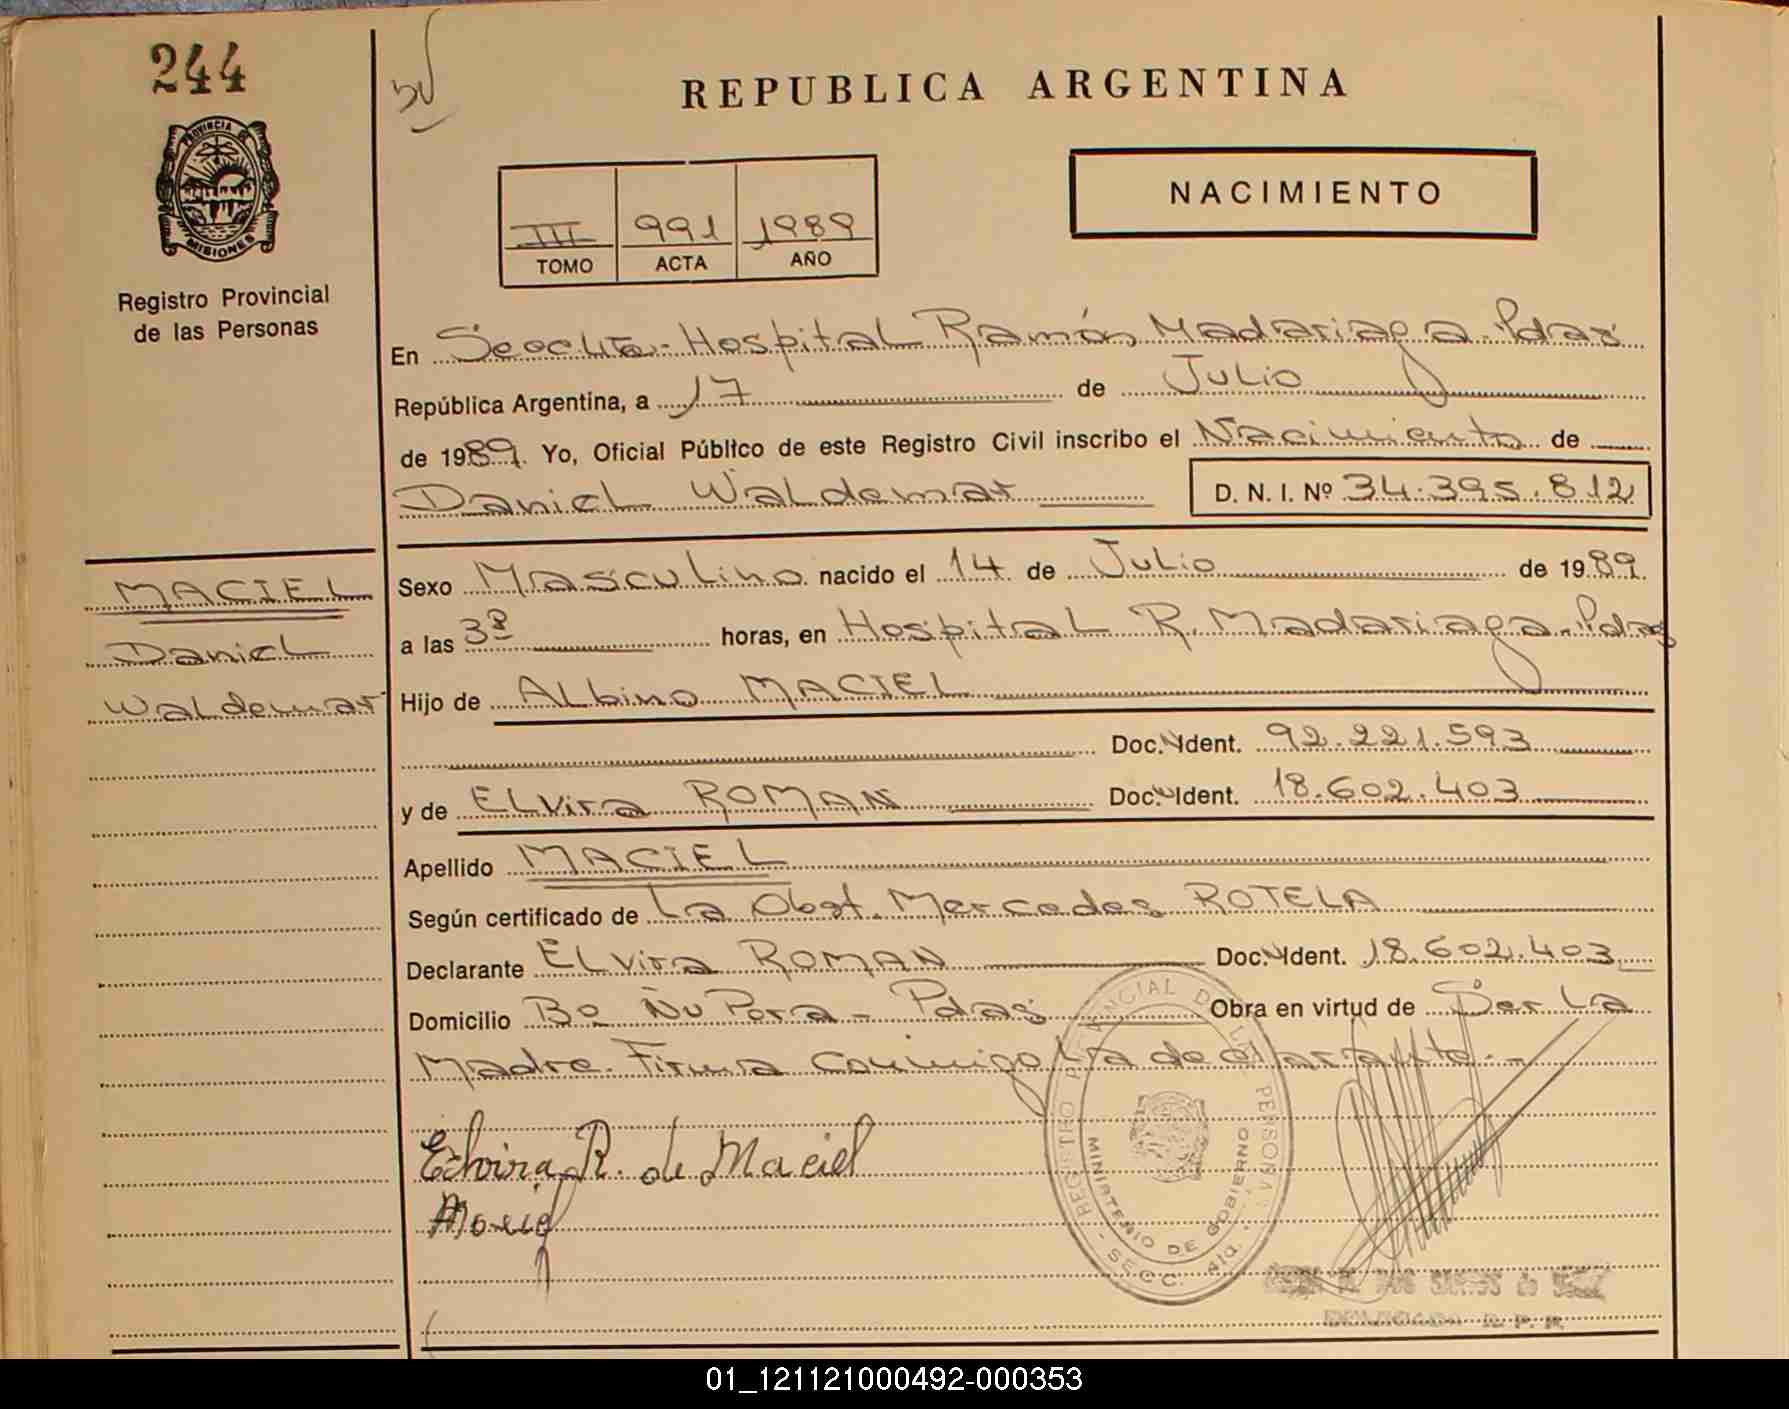 244
PROVINCIA DE
MISIONES
Registro Provincial
de las Personas
REPUBLICA ARGENTINA
NACIMIENTO
III 991 1989
TOMO ACTA AÑO
En Secc 4ta - Hospital Ramón Madariaga - Pdas
República Argentina, a 17 de Julio
de 1989. Yo, Oficial Público de este Registro Civil inscribo el Nacimiento de
Daniel Waldemar D. N. I. Nº 34.395.812
MACIEL
Daniel
Waldemar
Sexo Masculino nacido el 14 de Julio de 1989.
a las 3 horas, en Hospital R. Madariaga - Pdas
Hijo de Albino MACIEL
Doc. Ident. 92.221.593
y de Elvira ROMAN Doc. Ident. 18.602.403
Apellido MACIEL
Según certificado de La Obst. Mercedes ROTELA
Declarante Elvira ROMAN Doc. Ident. 18.602.403
Domicilio Bº Ñu Pora - Pdas Obra en virtud de Ser la
Madre. Firma conmigo la declarante. -
Elvira R. de Maciel
Maciel
REGISTRO PROVINCIAL DE LAS PERSONAS
MINISTERIO DE GOBIERNO
- SECC. 4ta. -
DELEGADA R. P. P.
01_121121000492-000353